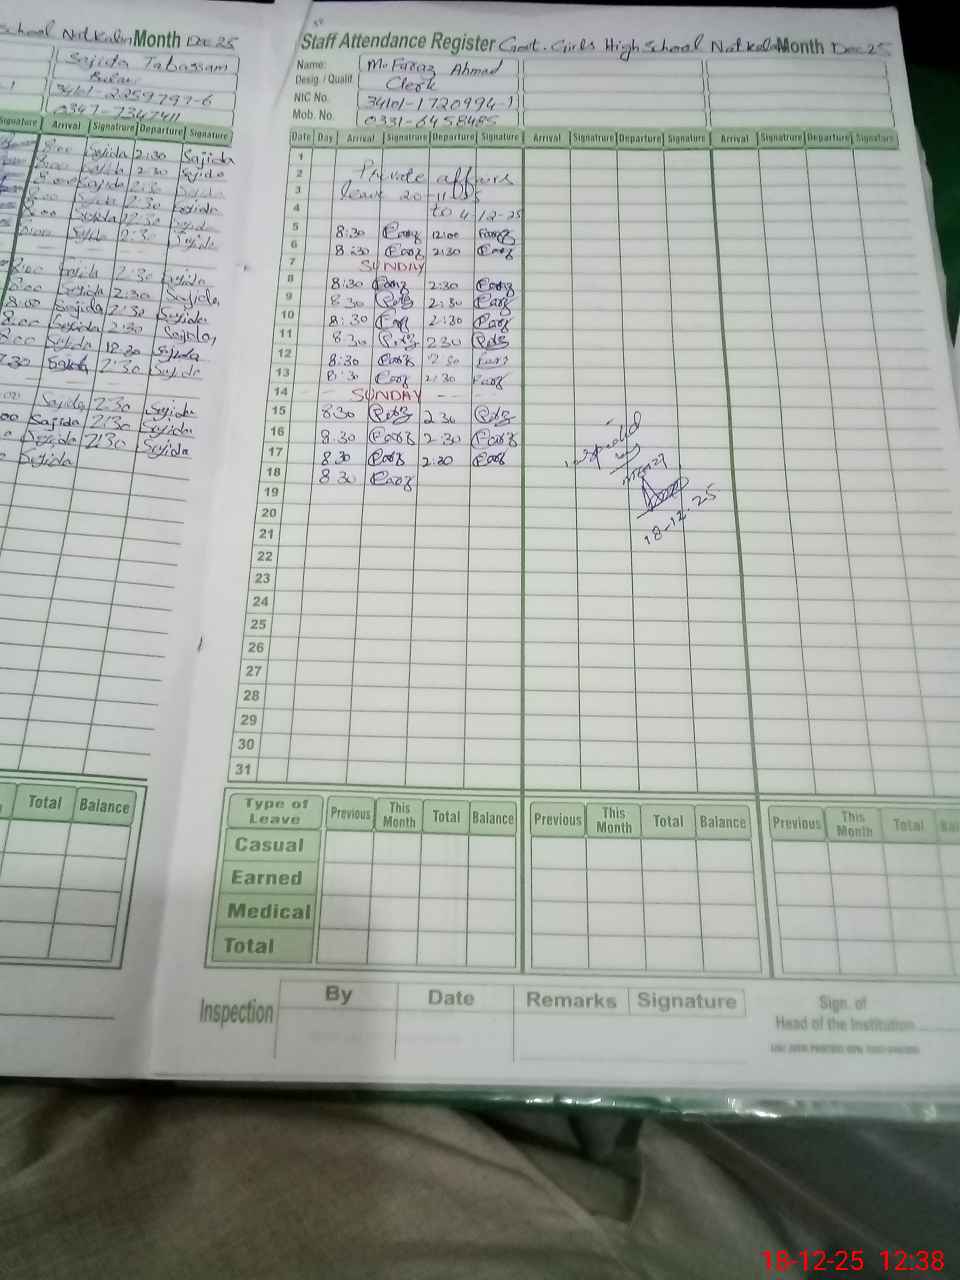 School Natkalan Month Dec 25
Sajida Tabassam
34101-2259797-6
0347-7347411
Signature Arrival Signatrure Departure Signature
8:00 Sajida 2:30 Sajida
8:00 Sajida 2:30 Sajida
8:00 Sajida 2:30 Sajida
8:00 Sajida 2:30 Sajida
8:00 Sajida 12:30 Sajida
8:00 Sajida 2:30 Sajida
8:00 Sajida 2:30 Sajida
8:00 Sajida 2:30 Sajida
8:00 Sajida 2:30 Sajida
8:00 Sajida 2:30 Sajida
8:00 Sajida 12:30 Sajida
7:30 Sajida 2:30 Sajida
Sajida 2:30 Sajida
Sajida 2:30 Sajida
Sajida 2:30 Sajida
Sajida
Total Balance
Staff Attendance Register Govt. Girls High School Natkalan Month Dec 25
Name: M. Faraz Ahmad
Desig. / Qualif. Clerk
NIC No. 34101-1720994-1
Mob. No. 0331-6458485
Date Day Arrival Signatrure Departure Signature Arrival Signatrure Departure Signature Arrival Signatrure Departure Signature
1
2 Private affairs
3 leave 20-11-25
4 to 4-12-25
5 8:30 Faraz 12:00 Faraz
6 8:30 Faraz 2:30 Faraz
7 SUNDAY
8 8:30 Faraz 2:30 Faraz
9 8:30 Faraz 2:30 Faraz
10 8:30 Faraz 2:30 Faraz
11 8:30 Faraz 2:30 Faraz
12 8:30 Faraz 2:30 Faraz
13 8:30 Faraz 2:30 Faraz
14 SUNDAY
15 8:30 Faraz 2:30 Faraz
16 8:30 Faraz 2:30 Faraz
17 8:30 Faraz 2:30 Faraz
18 8:30 Faraz
18-12-25
19
20
21
22
23
24
25
26
27
28
29
30
31
Type of Leave Previous This Month Total Balance Previous This Month Total Balance Previous This Month Total
Casual
Earned
Medical
Total
Inspection By Date Remarks Signature
Sign. of
Head of the Institution
18-12-25 12:38